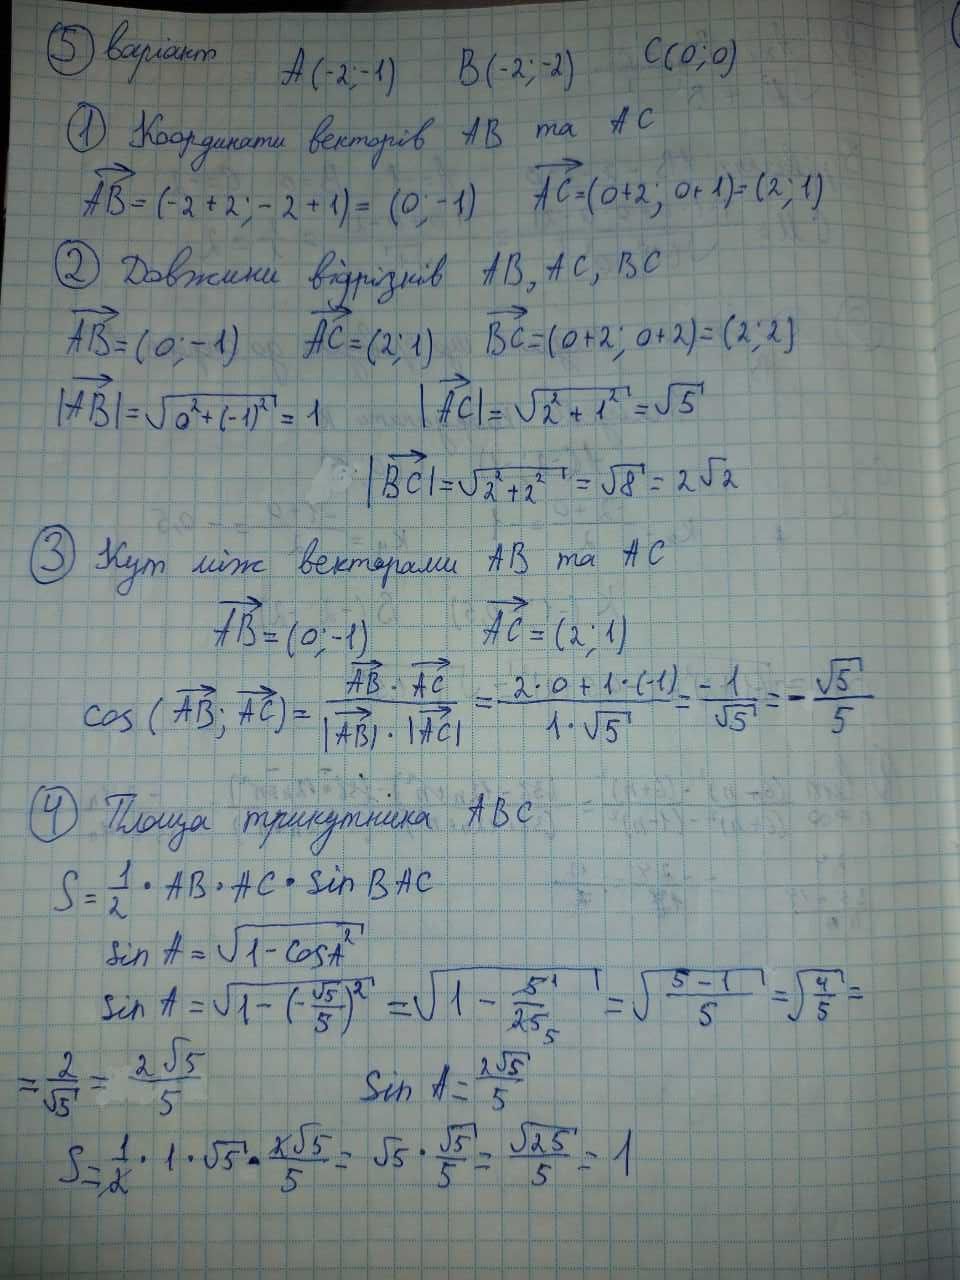 ⑤ варіант A(-2;-1) B(-2;-2) C(0;0)
① Координати векторів AB та AC
\overrightarrow{AB}=(-2+2;-2+1)=(0;-1) \overrightarrow{AC}=(0+2;0+1)=(2;1)
② Довжини відрізків AB, AC, BC
\overrightarrow{AB}=(0;-1) \overrightarrow{AC}=(2;1) \overrightarrow{BC}=(0+2;0+2)=(2;2)
|\overrightarrow{AB}|=√(0²+(-1)²)=1 |\overrightarrow{AC}|=√(2²+1²)=√5
|\overrightarrow{BC}|=√(2²+2²)=√8=2√2
③ Кут між векторами AB та AC
\overrightarrow{AB}=(0;-1) \overrightarrow{AC}=(2;1)
cos(\overrightarrow{AB};\overrightarrow{AC})=\frac{\overrightarrow{AB}·\overrightarrow{AC}}{|\overrightarrow{AB}|·|\overrightarrow{AC}|}=\frac{2·0+1·(-1)}{1·√5}=\frac{-1}{√5}=-\frac{√5}{5}
④ Площа трикутника ABC
S=\frac{1}{2}·AB·AC·sin BAC
sin A=√(1-cosA²)
sin A=√(1-(-\frac{√5}{5})²)=√(1-\frac{5^1}{25_5})=√(\frac{5-1}{5})=√(\frac{4}{5})=
=\frac{2}{√5}=\frac{2√5}{5} Sin A=\frac{2√5}{5}
S=\frac{1}{2}·1·√5·\frac{2√5}{5}=√5·\frac{√5}{5}=\frac{√25}{5}=1